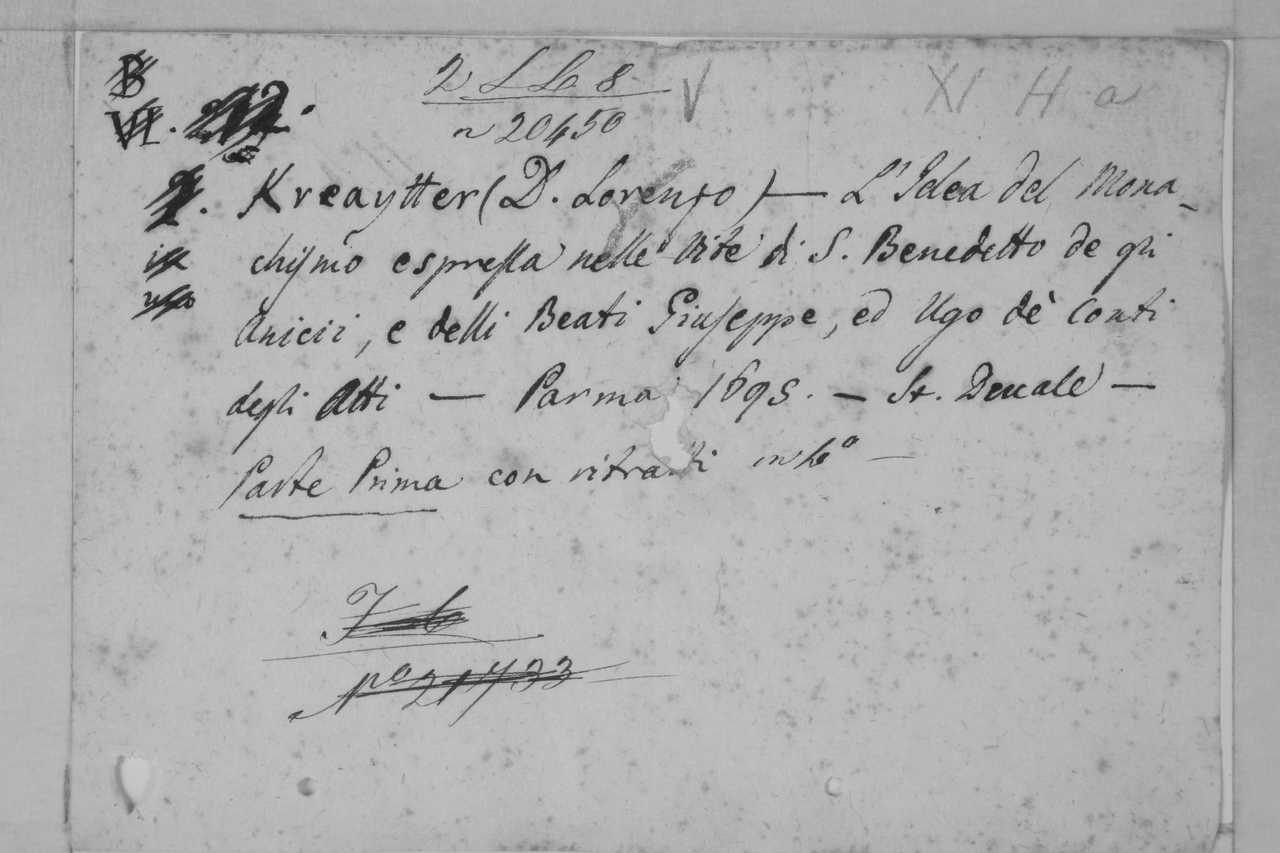 B
VI.
2 L Lb 8 V XI H a
n 20450
Kreaytter (D. Lorenzo) — L'Idea del Mona-
chismo espressa nelle Vite di S. Benedetto de gli
Anicii, e delli Beati Giuseppe, ed Ugo dè Conti
degli Atti — Parma 1695. — St. Ducale —
Parte Prima con ritratti in
Nº 21733